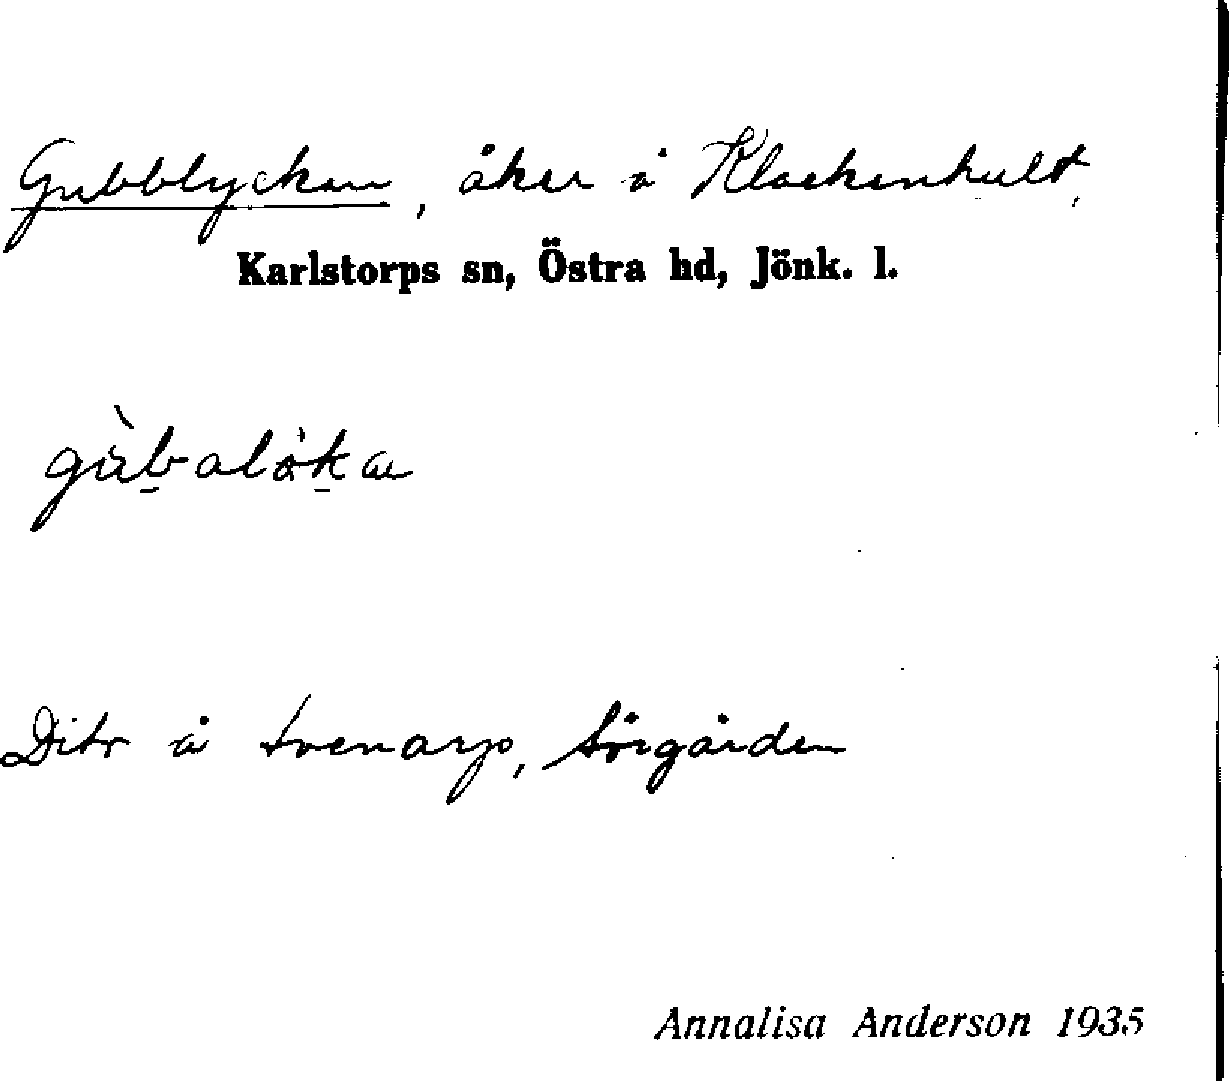 Gubblyckan, åker å Klockenhult,
Karlstorps sn, Östra hd, Jönk. l.
Dito å Svenarp, Sörgården
Annalisa Anderson 1935